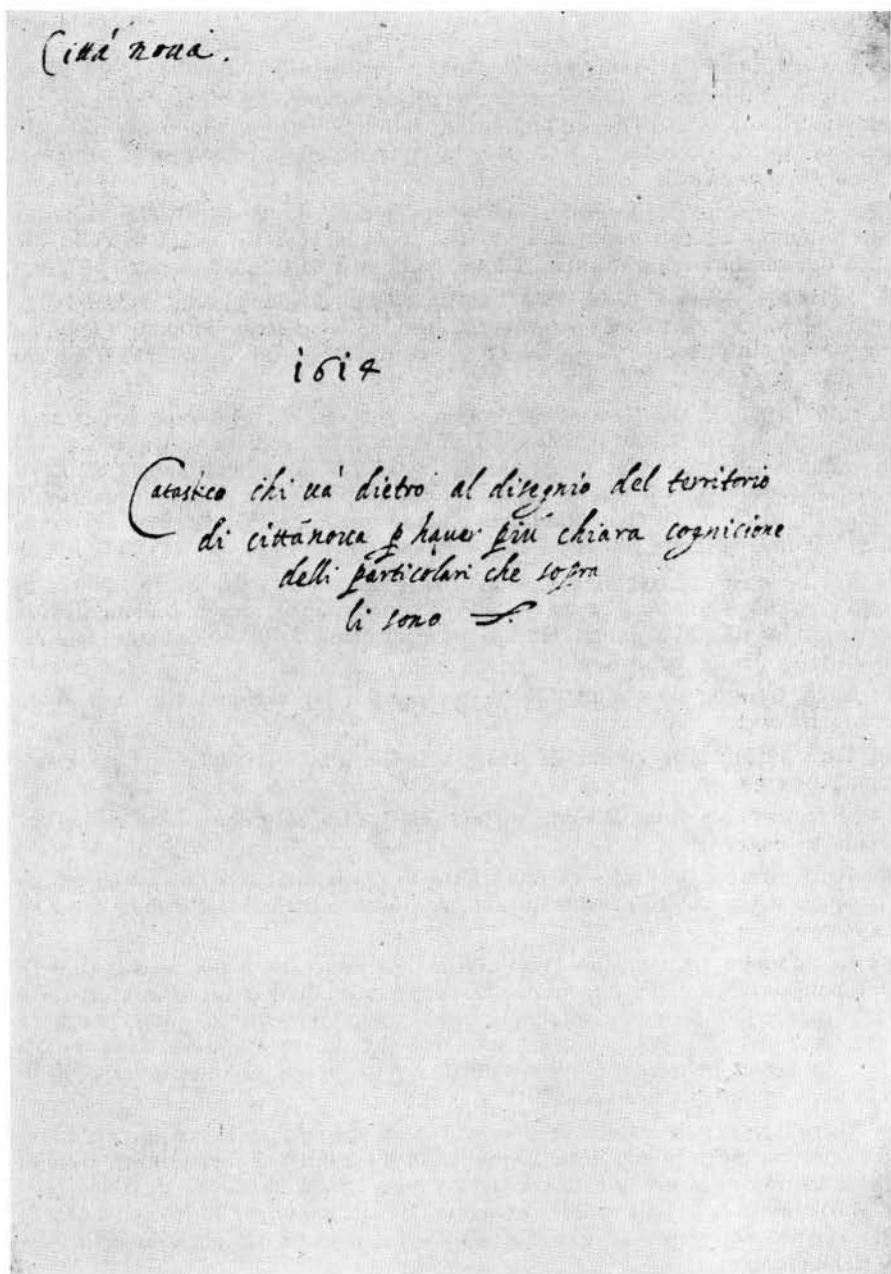 Città noua.
1614
Catastico chi uà dietro al disegnio del territorio
di cittànoua p hauer più chiara cognicione
delli particolari che sopra
li sono